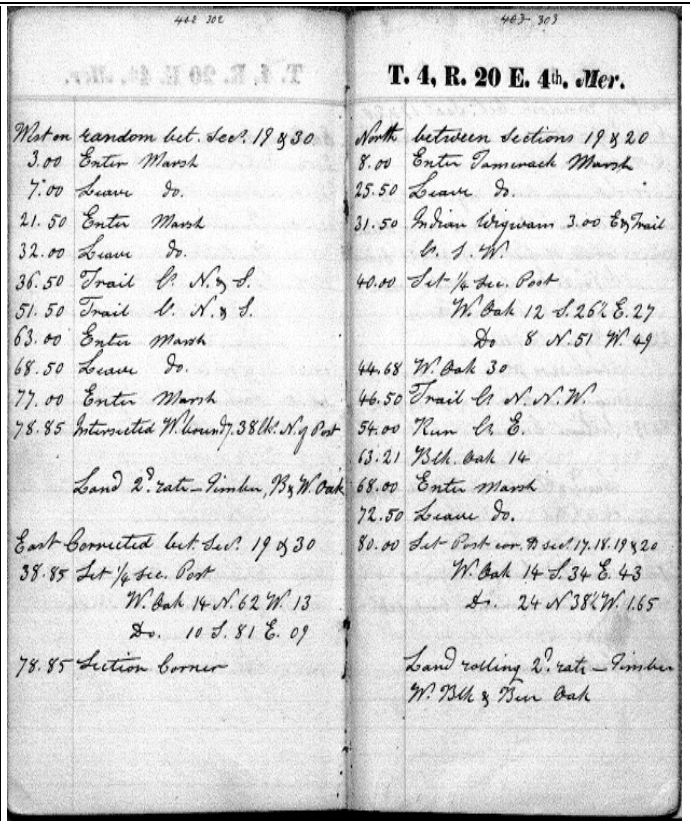 402 302
West on random bet. Secs. 19 & 30
3.00 Enter Marsh
7.00 Leave do.
21.50 Enter Marsh
32.00 Leave do.
36.50 Trail C. N. & S.
51.50 Trail C. N. & S.
63.00 Enter Marsh
68.50 Leave do.
77.00 Enter Marsh
78.85 Intersected W. bound'y 38 lks. N. of Post
Land 2d. rate – Timber, B & W Oak
East Corrected bet. Secs. 19 & 30
38.85 Set 1/4 sec. Post
W. Oak 14 N. 62 W. 13
Do. 10 S. 81 E. 09
78.85 Section Corner
403 303
T. 4, R. 20 E. 4th. Mer.
North between Sections 19 & 20
8.00 Enter Tamerack Marsh
25.50 Leave do.
31.50 Indian Wigwam 3.00 E & Trail
C. S. W.
40.00 Set 1/4 sec. Post
W. Oak 12 S. 26½ E. 27
Do 8 N. 51 W. 49
44.68 W. Oak 30
46.50 Trail C. N. N. W.
54.00 Run C. E.
63.21 Blk. Oak 14
68.00 Enter Marsh
72.50 Leave do.
80.00 Set Post cor. to sec. 17. 18. 19 & 20
W. Oak 14 S. 34 E. 43
Do. 24 N 38½ W. 1.65
Land rolling 2d. rate – Timber
W. Blk & Bur Oak